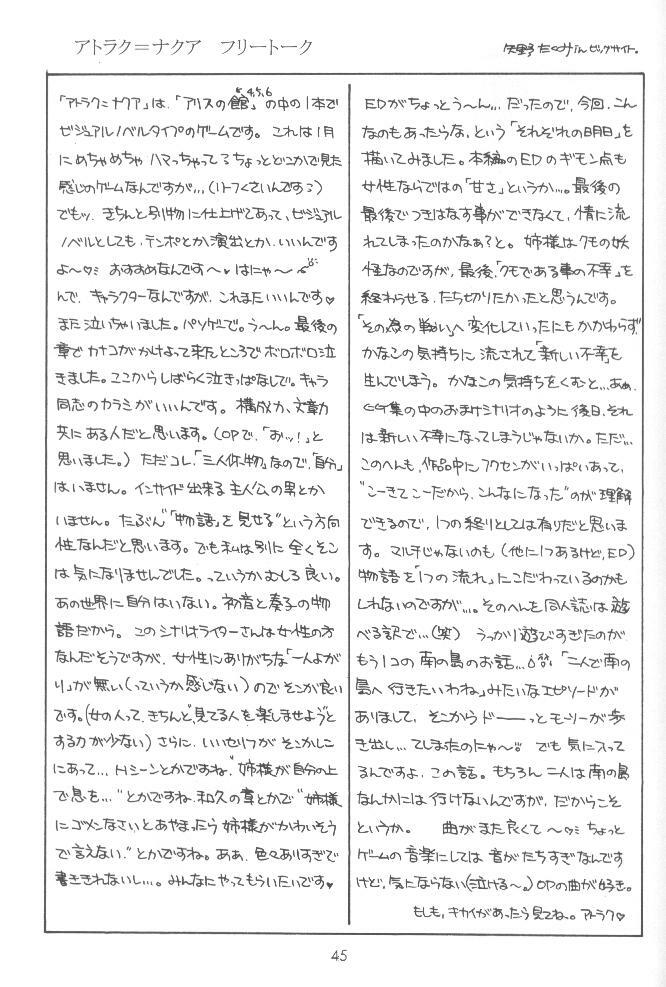 アトラク＝ナクア　フリートーク
矢野たくみinビッグサイト。
「アトラク＝ナクア」は、「アリスの館4,5,6」の中の1本で
ビジュアルノベルタイプのゲームです。これは1月
にめちゃめちゃハマっちゃってるちょっとどこかで見た
感じのゲームなんですが…(リーフくさいんです?)
でもッ、きちんと別物に仕上げてあって、ビジュアル
ノベルとしても、テンポとか演出とか、いいんです
よ〜♡ミ おすすめなんです〜♥はにゃ〜
んで、キャラクターなんですが、これまたいいんです♥
また泣いちゃいました。パソゲで。う〜ん。最後の
章でカナコがかけよって来たところでボロボロ泣
きました。ここからしばらく泣きっぱなしで。キャラ
同志のカラミがいいんです。構成力、文章力
共にある人だと思います。(OPで、「おッ！」と
思いました。)ただコレ、「三人体物」なので、「自分」
はいません。インサイド出来る主人公の男とか
いません。たぶん"「物語」を見せる"という方向
性なんだと思います。でも私は別に全くそこ
は気になりませんでした。っていうかむしろ良い。
あの世界に自分はいない。初音と奏子の物
語だから。このシナリオライターさんは女性の方
なんだそうですが、女性にありがちな「一人よが
り」が無い(っていうか感じない)のでそこが良い
です。(女の人って、きちんと"見てる人を楽しませよう"と
する力が少ない)さらに、いいセリフがそこかしこ
にあって…Hシーンとかですね。"姉様が自分の上
で息を…"とかですね、和久の章とかで"姉様
にゴメンなさいとあやまったら姉様がかわいそう
で言えない"とかですね。ああ、色々ありすぎで
書ききれないし…。みんなにやってもらいたいです♥
EDがちょっとう〜ん…だったので、今回、こん
なのもあったらな、という「それぞれの明日」を
描いてみました。本編のEDのギモン点も
女性ならではの「甘さ」というか…。最後の
最後でつきはなす事ができなくて、情に流
れてしまったのかなぁ?と。姉様はクモの妖
怪なのですが、最後、「クモである事の不幸」を
終わらせる、たち切りたかったと思うんです。
「その為の戦い」へ変化していったにもかかわらず、
かなこの気持ちに流されて「新しい不幸」を
生んでしまう。かなこの気持ちをくむと…ああ、
CG集の中のおまけシナリオのように後日、それ
は新しい不幸になってしまうじゃないか。ただ…
このへんも、作品中にフクセンがいっぱいあって、
"こーきてこーだから、こんなになった"のが理解
できるので、1つの終りとしては有りだと思いま
す。マルチじゃないのも(他に1つあるけど、ED)
物語を「1つの流れ」にこだわっているのかも
しれないのですが…。そのへんを同人誌は遊
べる訳で…(笑)うっかり1遊びすぎたのが
もう1コの南の島のお話…「二人で南の
島へ行きたいわね」みたいなエピソードが
ありまして、そこからドーーーっとモーリーが歩
き出し…てしまったのにゃ〜 でも気に入って
るんですよ、この話。もちろん二人は南の島
なんかには行けないんですが、だからこそ
というか。 曲がまた良くて〜♡ミ ちょっと
ゲームの音楽にしては音がたちすぎなんです
けど、気にならない(泣ける〜。)OPの曲が好き。
もしも、キカイがあったら見てね。アトラク♡
45